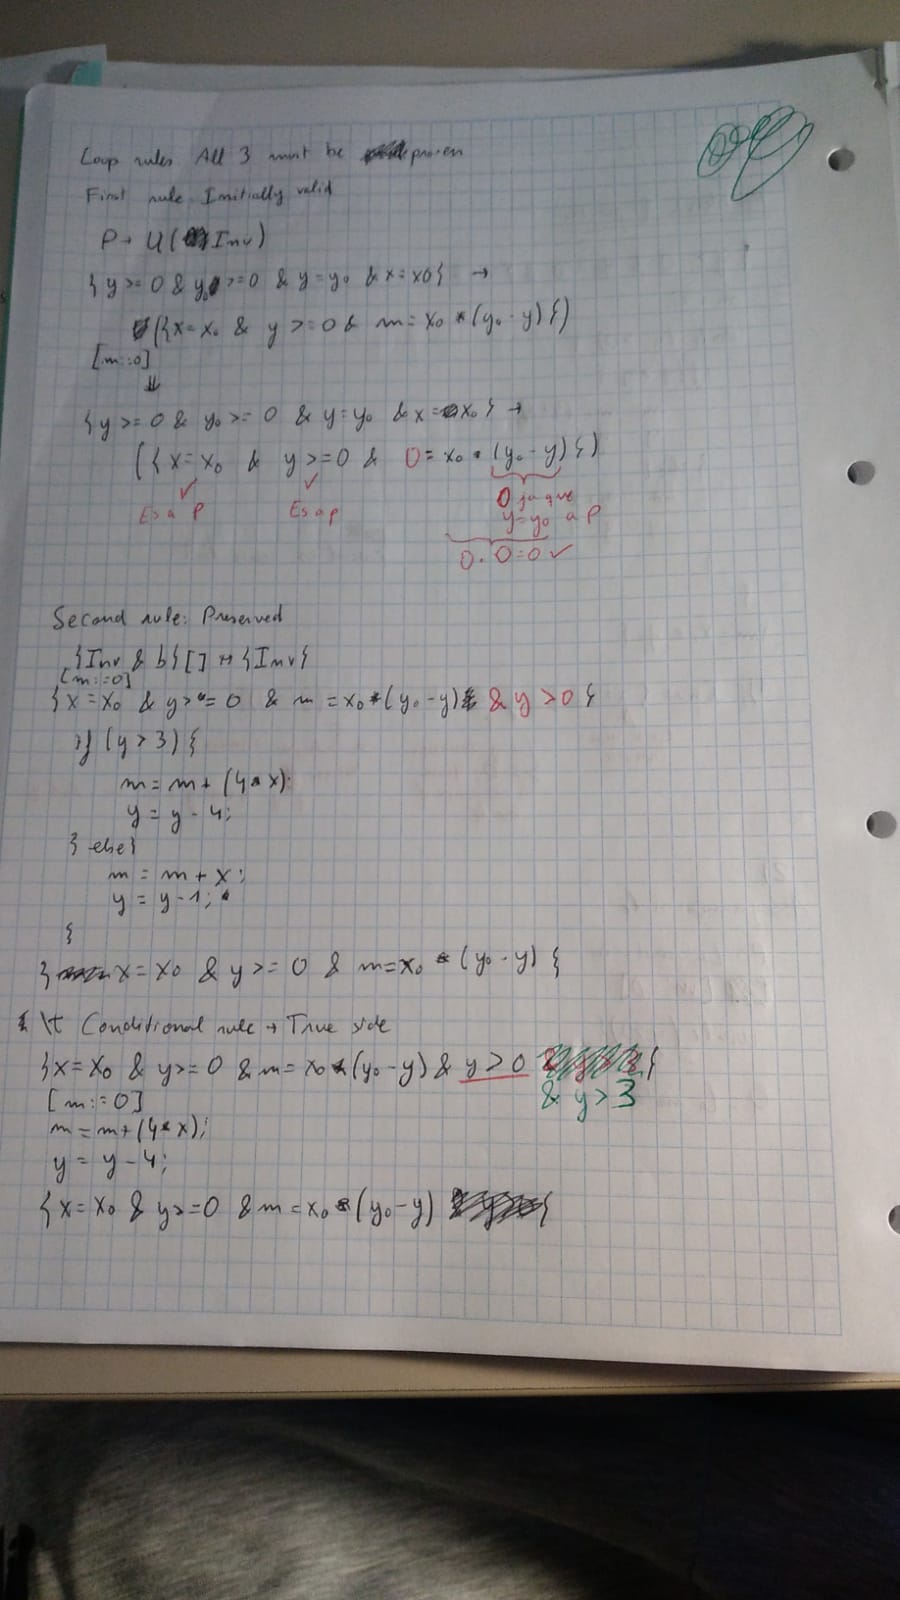 Loop rules All 3 must be proven
First rule Initially valid
P → U(Inv)
{y>=0 & y₀>=0 & y=y₀ & x=x0} →
({x=x₀ & y>=0 & m=x₀*(y₀-y)})
[m:=0]
⇓
{y>=0 & y₀>=0 & y=y₀ & x=x₀} →
({x=x₀ & y>=0 & 0=x₀*(y₀-y)})
✓ ✓
Es a P Es a p
0 ja que
y=y₀ a P
0·0=0 ✓
Second rule: Preserved
{Inv & b}[] → {Inv}
[m:=0]
{x=x₀ & y>=0 & m=x₀*(y₀-y) & y>0}
if (y>3){
m=m+(4*x);
y=y-4;
} else{
m=m+x;
y=y-1;
}
{x=x₀ & y>=0 & m=x₀*(y₀-y)}
Conditional rule → True side
{x=x₀ & y>=0 & m=x₀*(y₀-y) & y>0 }
& y>3
[m:=0]
m=m+(4*x);
y=y-4;
{x=x₀ & y>=0 & m=x₀*(y₀-y) }